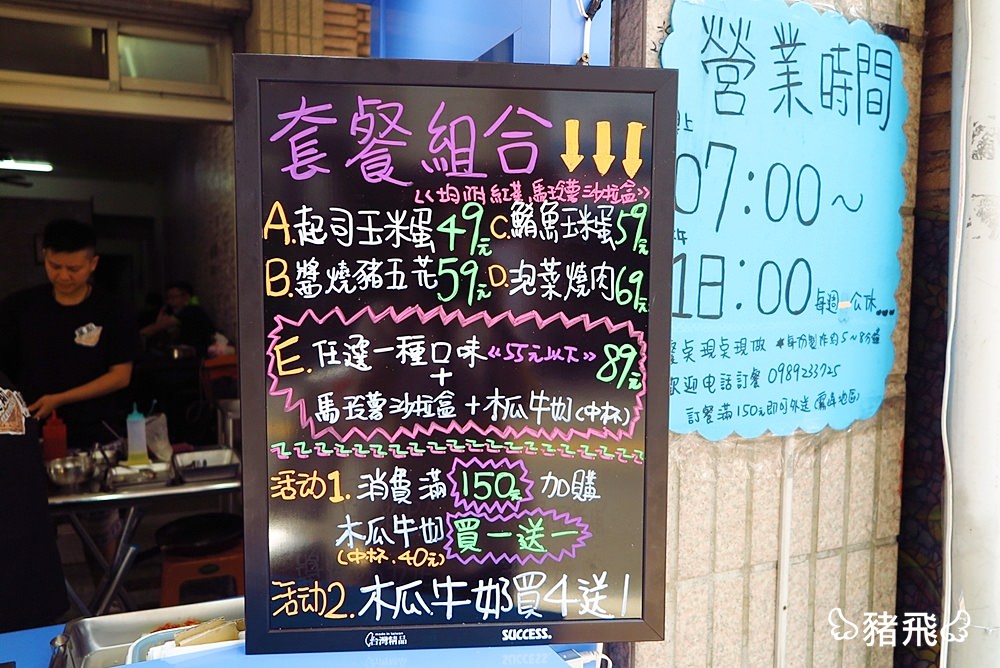 套餐組合
《均附紅茶,馬玲薯沙拉盒》
A.起司玉米蛋49元
C.鮪魚玉米蛋59元
B.醬燒豬五花59元
D.泡菜燒肉69元
E.任選一種口味《55元以下》89元
+
馬玲薯沙拉盒+木瓜牛奶(中杯)
活动1.消費滿150元加購
木瓜牛奶買一送一
(中杯.40元)
活动2.木瓜牛奶買4送1
made in taiwan
台灣精品
SUCCESS®
營業時間
上
07:00~
:00
每週一公休
現桌現做 *每份製作約5~8分鐘
歡迎电話訂餐 0989233725
訂餐滿150元即可外送(霧峰地區)
豬飛